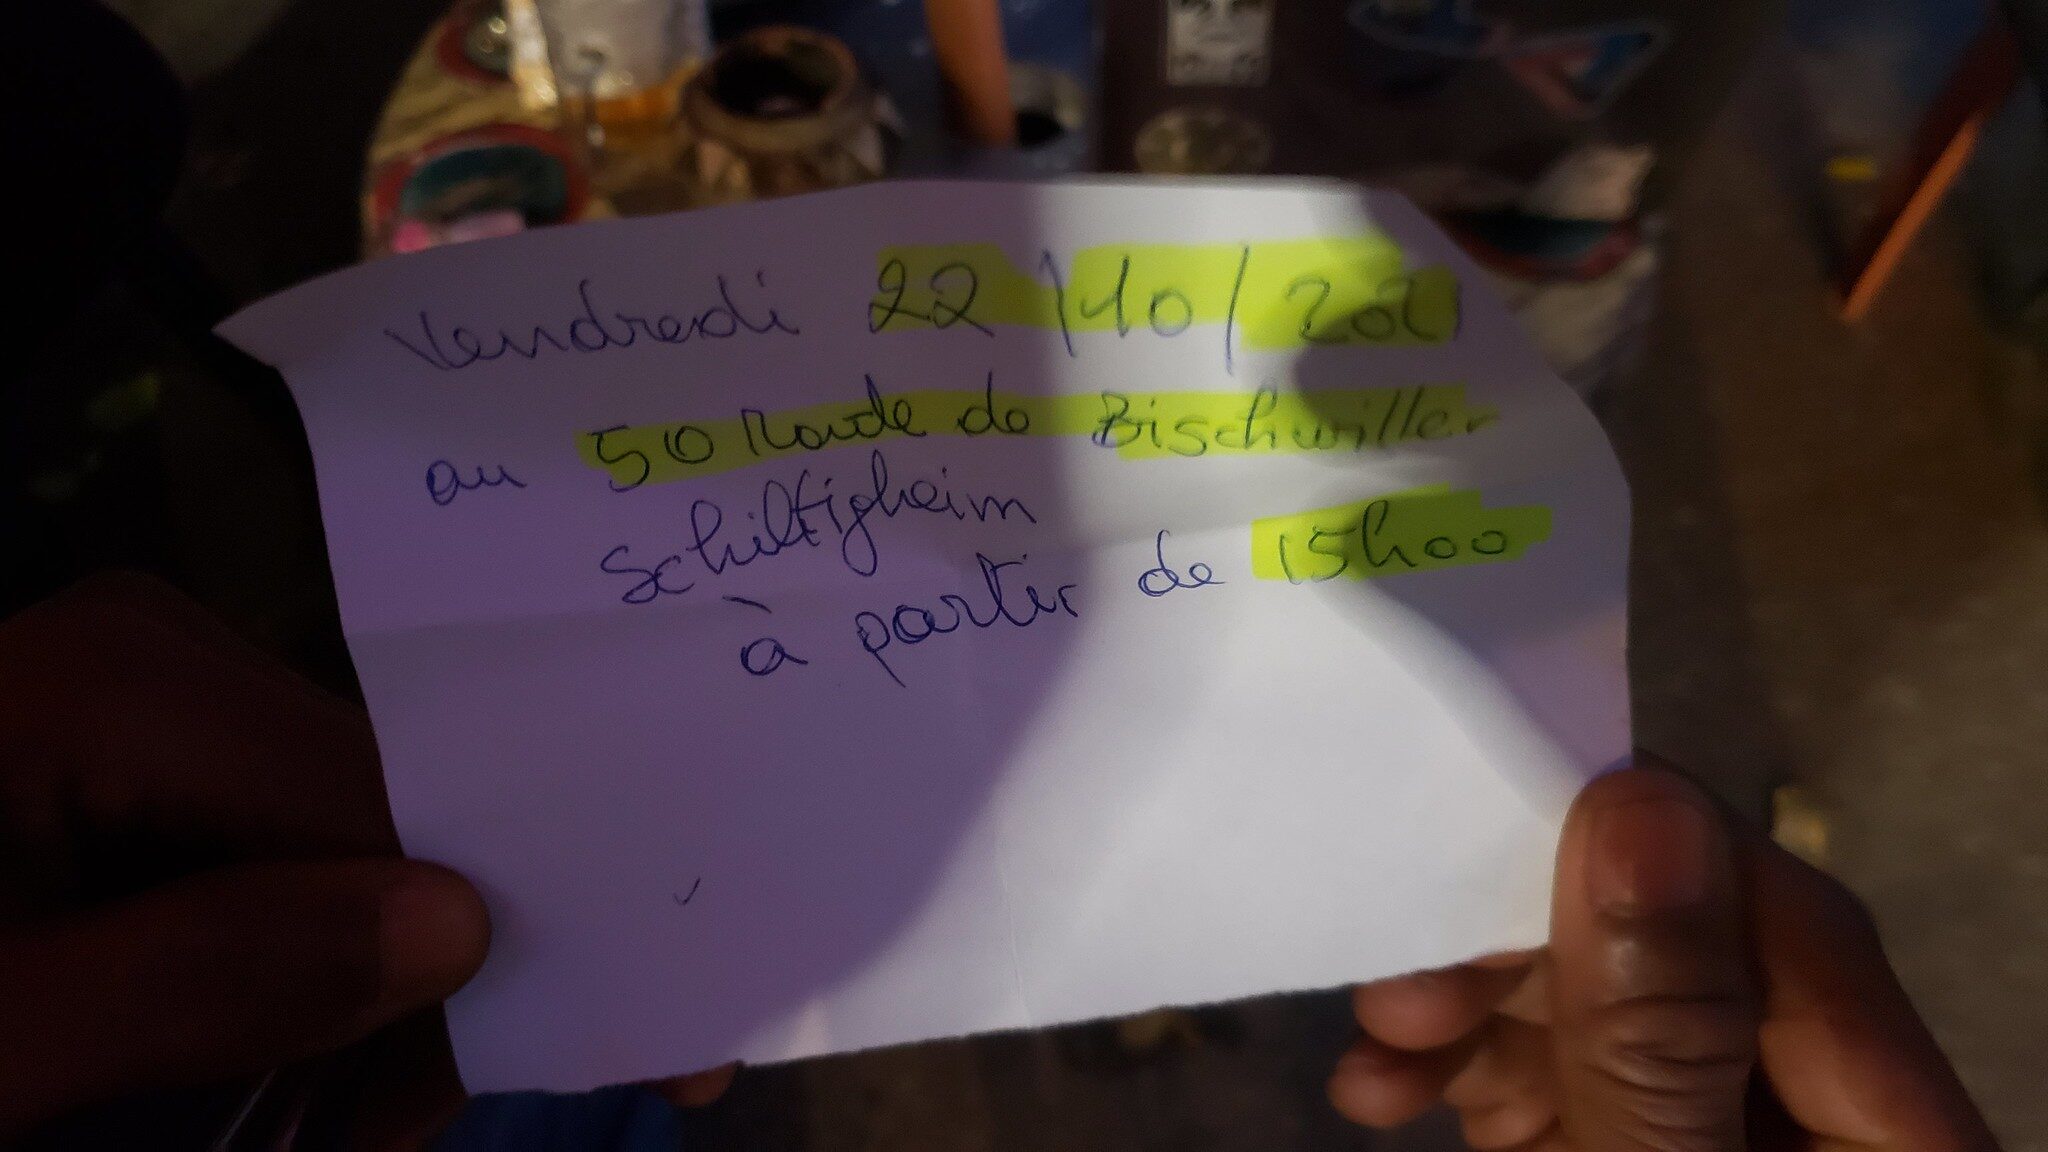 Vendredi 22/10/2021
au 50 Route de Bischwiller
Schiltigheim
à partir de 15h00